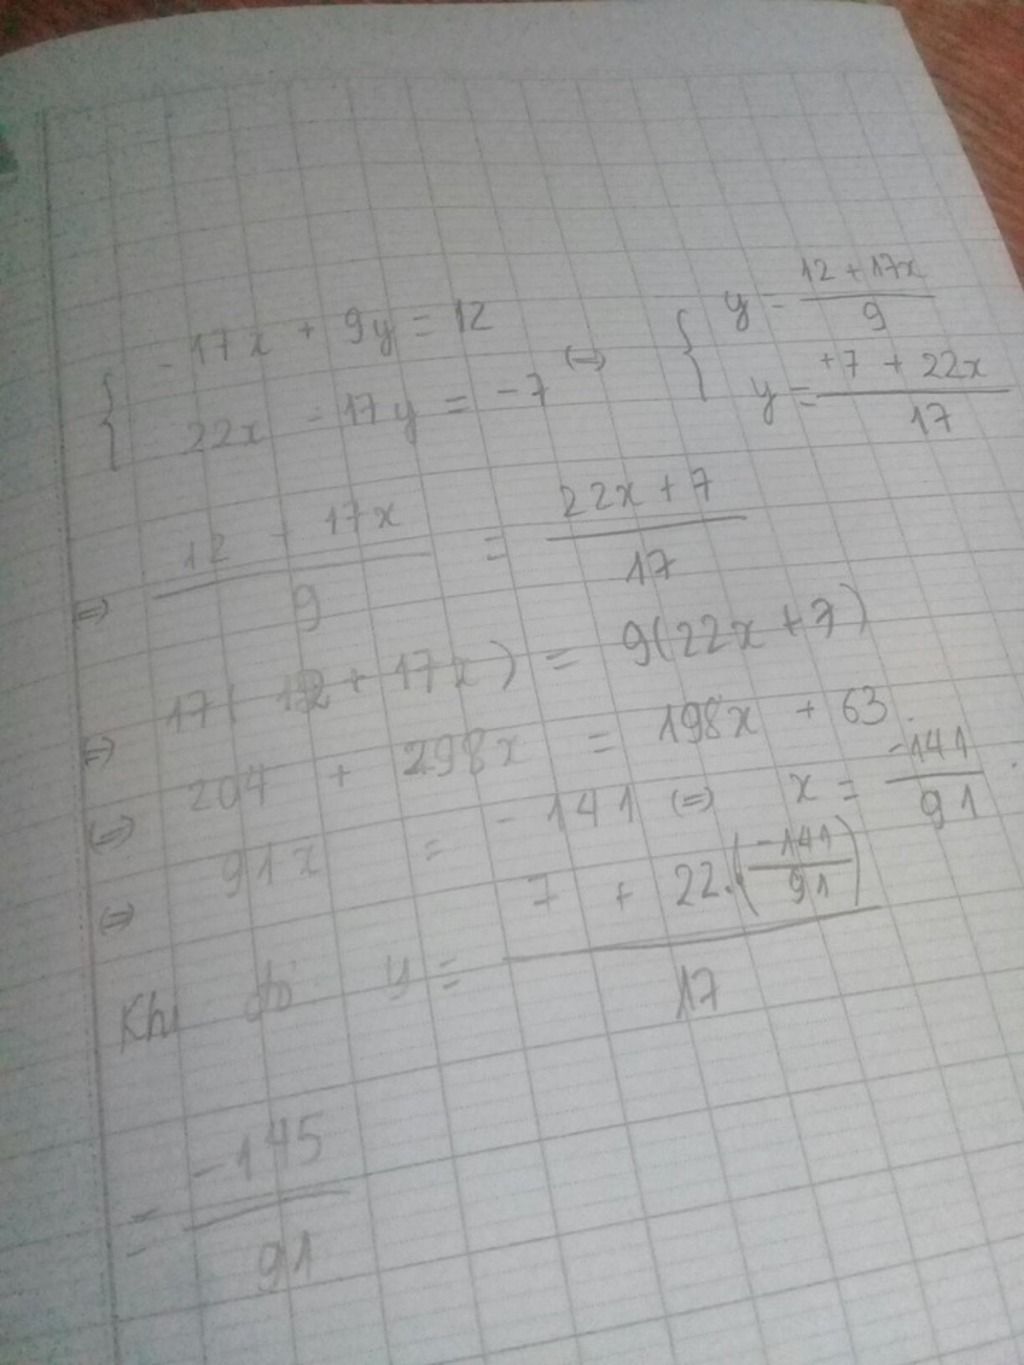 { -17x + 9y = 12 (=) { y = (12 + 17x)/9
{ 22x - 17y = -7 { y = (+7 + 22x)/17
=) (12 + 17x)/9 = (22x + 7)/17
=) 17(12 + 17x) = 9(22x + 7)
(=) 204 + 298x = 198x + 63
(=) 91x = -141 (=) x = -141/91
Khi đó y = (7 + 22.(-141/91))/17
= -145/91